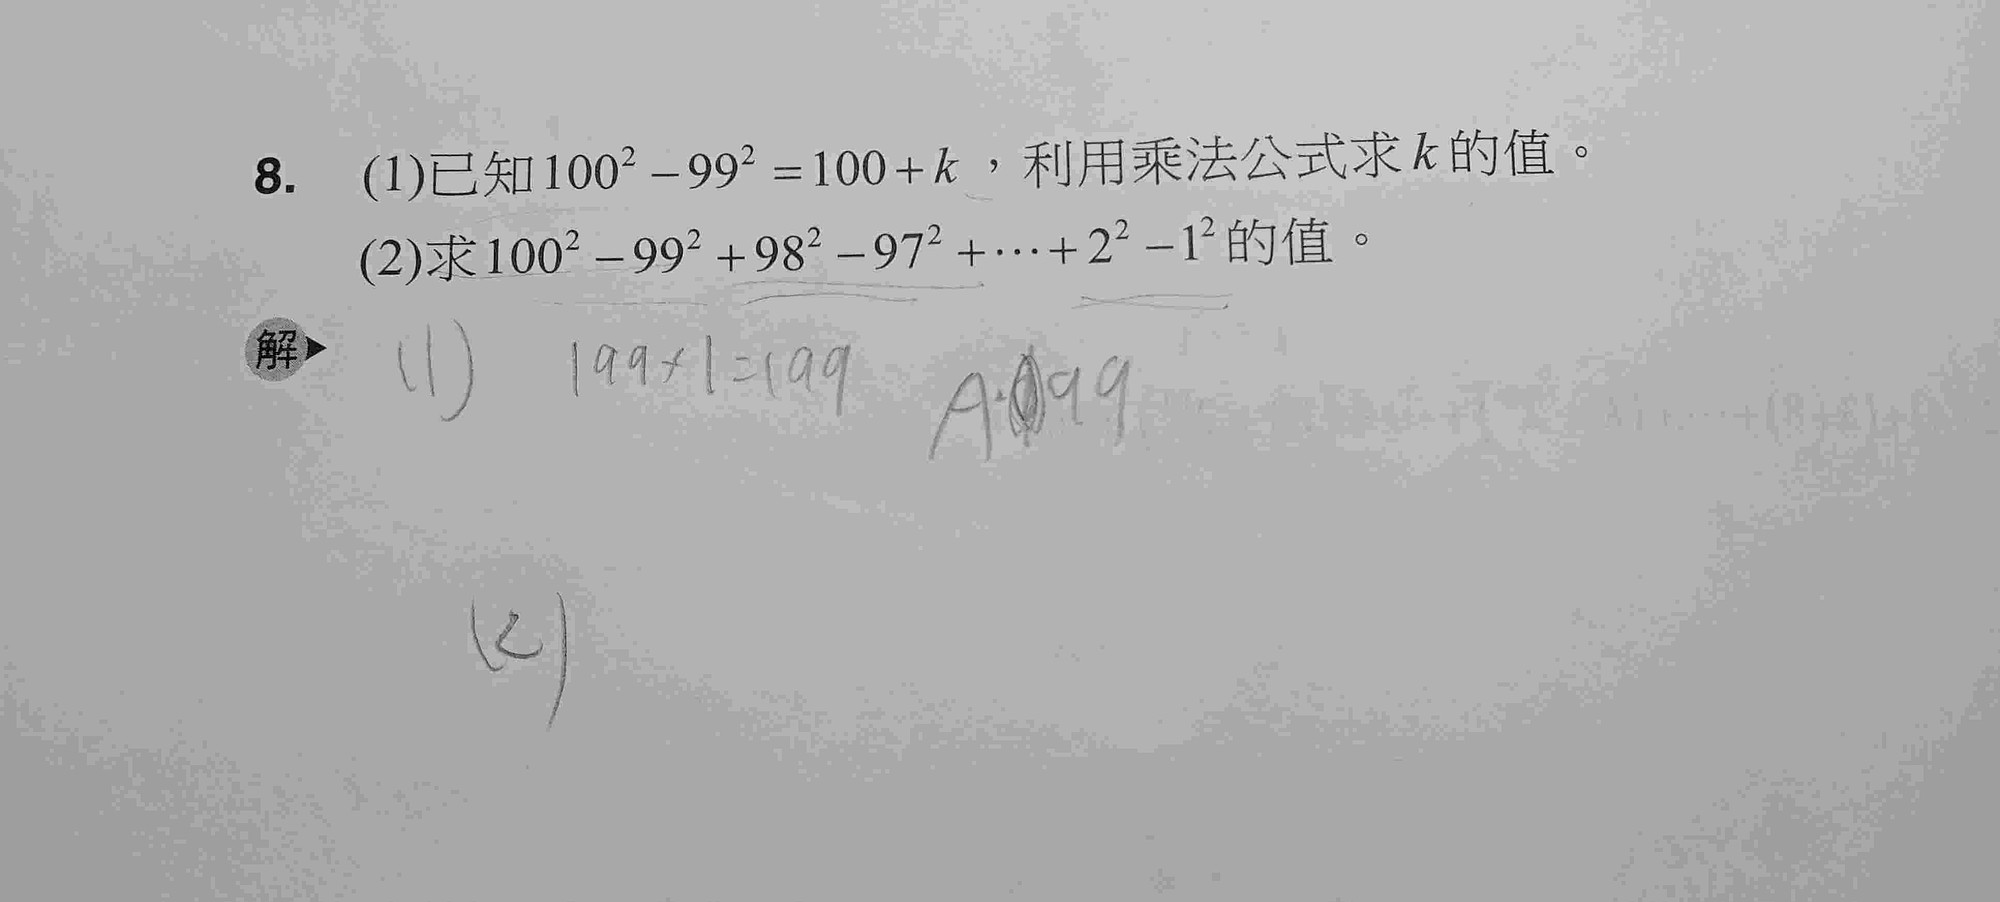 8. (1)已知100²−99²=100+k，利用乘法公式求k的值。
(2)求100²−99²+98²−97²+⋯+2²−1²的值。
解▶ (1) 199×1=199 A:99
(2)